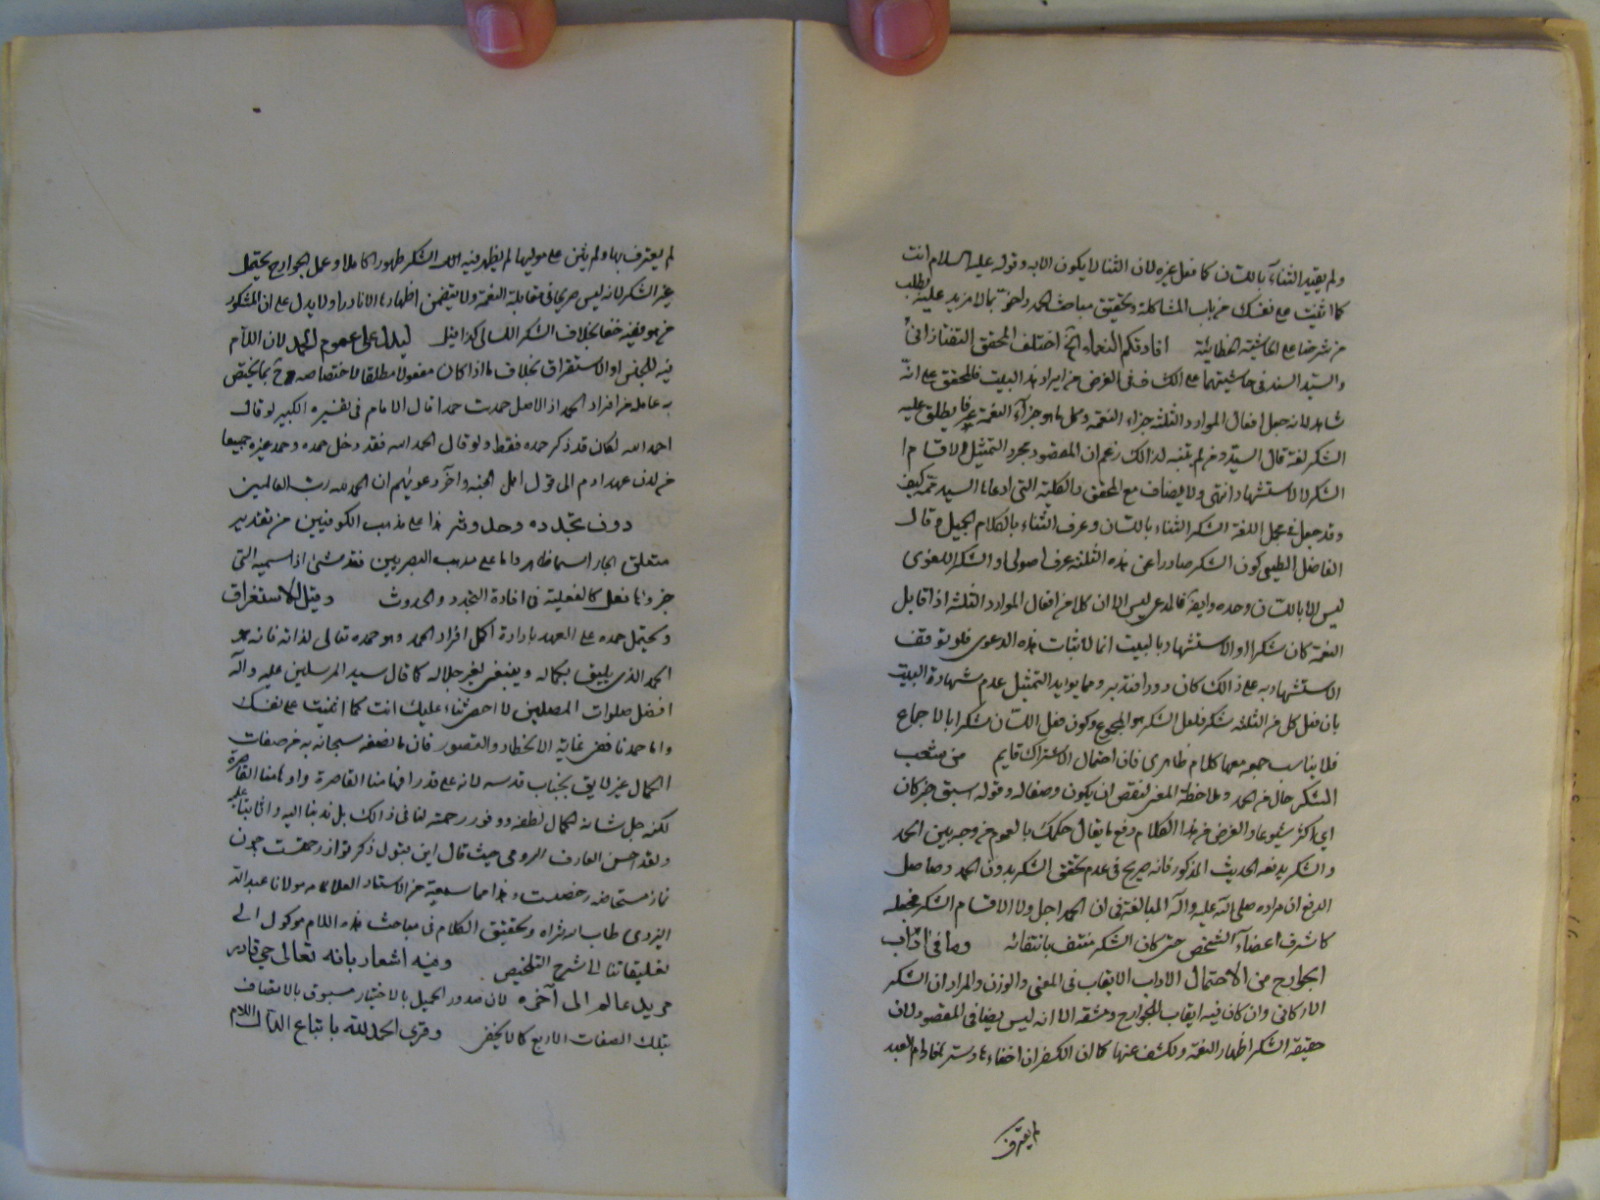 ولم يقيد الثناء باللسان كما فعل غيره لان الثنا لا يكون الا به وقوله عليه السلام انت
كما اثنيت على نفسك من باب المشاكلة وتحقيق مباحث الحمد واخوته بما لا مزيد عليه يطلب
من شرحنا على الحاشية الخطائية افادتكم النعماء الخ اختلف المحقق التفتازاني
والسيد السند في حاشيتهما على الكشاف في الغرض من ايراد هذا البيت فالمحقق على انه
شاهد لانه جعل افعال الموارد الثلثة جزاء النعمة وكل ما هو جزاء النعمة عرفا يطلق عليه
الشكر لغة قال السيد ومن لم يتنبه لذالك زعم ان المقصود مجرد التمثيل لاقسام
الشكر لا الاستشهاد انتهى ولا يضاف مع المحقق والكلية التي ادعاها السيد كيف
وقد جعل في مجمل اللغة الشكر الثناء باللسان وعرف الثناء بالكلام الجميل وقال
الفاضل الطيبي كون الشكر صادرا عن هذه الثلثة عرف اصولي او الشكر اللغوي
ليس الا باللسان وحده وايضا فالمدعى ليس الا ان كلا من افعال الموارد الثلثة اذا قابل
النعمة كان شكرا او الاستشهاد بالبيت انما لاثبات هذه الدعوى فلو توقف
الاستشهاد به على ذالك كان دورا فتدبر ومما يوايد التمثيل عدم شهادة البيت
بان فعل كل من الثلثة شكر فلعل الشكر هو المجموع وكون فعل اللسان شكرا بالاجماع
فلا يناسب جمعه معهما كلام ظاهري فان احتمال الاشتراك قايم من شعب
الشكر حال من الحمد وملاحظة المعنى تقتضي ان يكون وصفا له وقوله اسبق خبر كان
اي اكثر شيوعا والغرض من هذا الكلام دفع ما يقال حكمك بالعموم من وجه بين الحمد
والشكر يدفعه الحديث المذكور فانه صريح في عدم تحقق الشكر بدون الحمد وحاصل
الدفع ان مراده صلى الله عليه وآله المبالغة في ان الحمد اجل ولا الاقسام الشكر فجعله
كاشرف اعضاء الشخص حتى كان الشكر منتف بانتفائه وما في اداب
الجوارح من الاحتمال الاداب الاتعاب في المعنى والوزن والمراد ان الشكر
الاركاني وان كان فيه اتعاب للجوارح ومشقة الا انه ليس يضافي المقصود لان
حقيقة الشكر اظهار النعمة والكشف عنها كما ان الكفران اخفاءها وسترها فما دام العبد
لم يعترف
لم يعترف بها ولم يثن على موليها لم يظهر فيه الشكر ظهورا كاملا وعمل الجوارح يحتمل
غير الشكر لانه ليس صريحا في مقابلة النعمة ولا يتضمن اظهارها الا نادرا ولا يدل على ان المشكور
من هو ففيه خفا بخلاف الشكر اللساني كذا قيل ليدل على عموم الحمد لان اللام
فيه للجنس او الاستغراق بخلاف ما اذا كان مفعولا مطلقا لاختصاصه ح بما يختص
به عامله من افراد الحمد اذ الاصل حمدت حمدا قال الامام في تفسيره الكبير لو قال
احمد الله لكان قد ذكر حمده فقط ولو قال الحمد الله فقد دخل حمده وحمد غيره جميعا
من لدن عهد ادم الى قول اهل الجنة وآخر دعويهم ان الحمد لله رب العالمين
دون تجدده وحدوثه هذا على مذهب الكوفيين من تقدير
متعلق الجار اسما ظاهر واما على مذهب البصريين فقد مشى اذ اسمية التي
خبرها فعل كالفعلية في افادة التجدد والحدوث وقيل للاستغراق
ويحتمل حمده على العهد بارادة اكمل افراد الحمد وهو حمده تعالى لذاته فانه هو
الحمد الذي يليق بكماله وينبغي لعز جلاله كما قال سيد المرسلين عليه وآله
افضل صلوات المصلين لا احصي ثناء عليك انت كما اثنيت على نفسك
واما حمدنا ففي غاية الانحطاط والقصور فان ما نصفه سبحانه به من صفات
الكمال غير لايق بجناب قدسه لانه على قدر افهامنا القاصرة واوهامنا القاصرة
لكنه جل شانه لكمال لطفه ووفور رحمته لنا في ذالك بل ندبنا اليه واثابنا عليه
ولقد احسن العارف الرومي حيث قال اين قبول ذكر تو از رحمتست چون
نماز مستحاضه رخصتست هذا مما سمعته من الاستاد العلامة مولانا عبد الله
اليزدي طاب ثراه وتحقيق الكلام في مباحث هذه اللام موكول الى
تعليقاتنا على شرح التلخيص وفيه اشعار بانه تعالى حي قادر
مريد عالم الى آخره لان صدور الجميل بالاختيار مسبوق بالاتصاف
بتلك الصفات الاربع كما لا يخفى وقرى الحمد لله باتباع الدال اللام